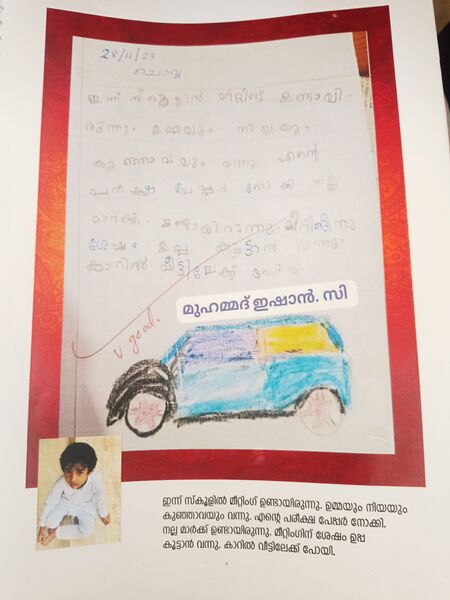 28/11/23
ചൊവ്വ
ഇന്ന് സ്കൂളിൽ മീറ്റിങ്ങ് ഉണ്ടായി-
രുന്നു. ഉമ്മയും നിയയും
കുഞ്ഞാവയും വന്നു എന്റെ
പരീക്ഷ പേപ്പർ നോക്കി നല്ല
മാർക്ക് ഉണ്ടായിരുന്നു. മീറ്റിങ്ങിനു
ശേഷം ഉപ്പ കൂട്ടാൻ വന്നു.
കാറിൽ വീട്ടിലേക്ക് പോയി.
മുഹമ്മദ് ഇഷാൻ. സി
v. good.
ഇന്ന് സ്കൂളിൽ മീറ്റിംഗ് ഉണ്ടായിരുന്നു. ഉമ്മയും നിയയും
കുഞ്ഞാവയും വന്നു. എന്റെ പരീക്ഷ പേപ്പർ നോക്കി.
നല്ല മാർക്ക് ഉണ്ടായിരുന്നു. മീറ്റിംഗിന് ശേഷം ഉപ്പ
കൂട്ടാൻ വന്നു. കാറിൽ വീട്ടിലേക്ക് പോയി.